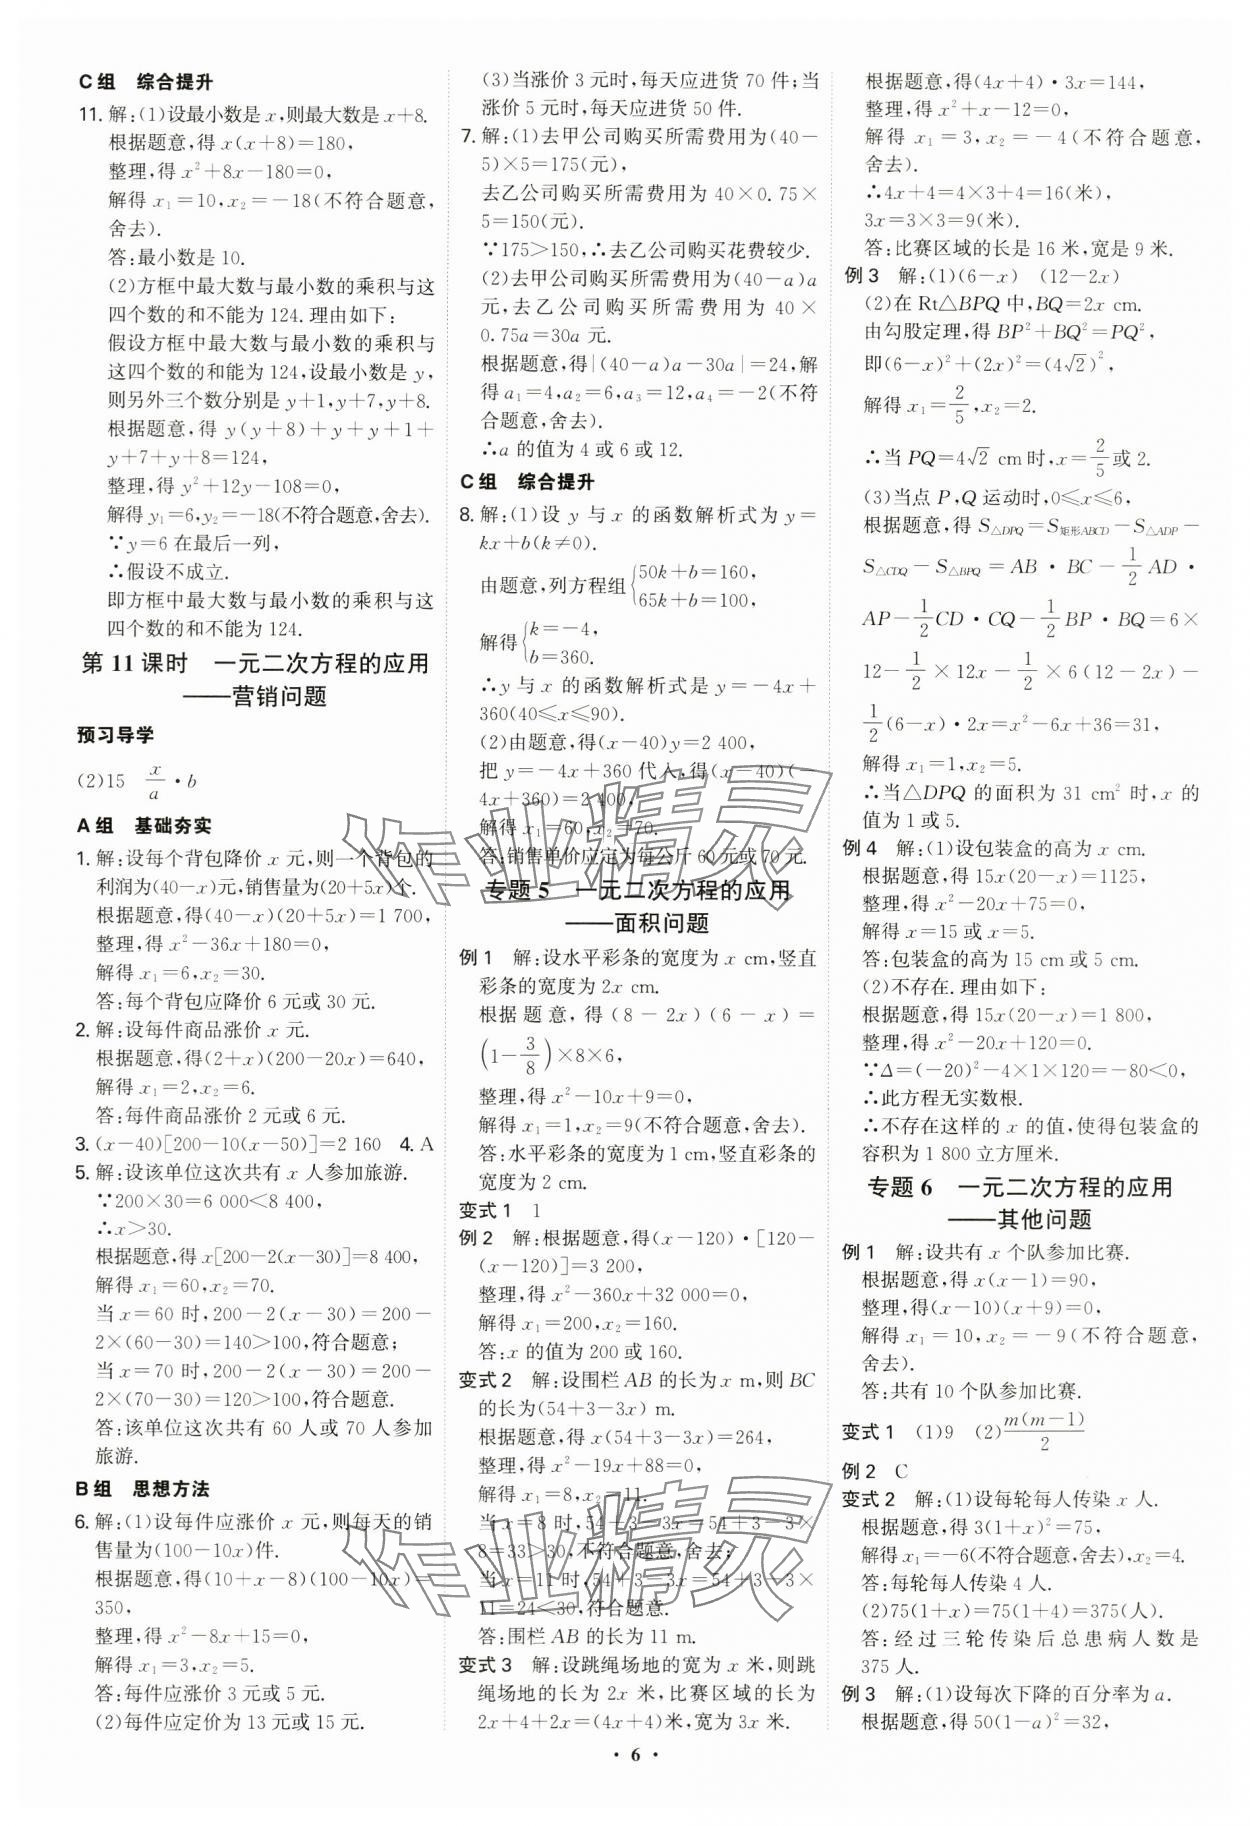 C组 综合提升
11. 解:(1)设最小数是 x,则最大数是 x+8.
根据题意,得 x(x+8)=180,
整理,得 x²+8x-180=0,
解得 x₁=10,x₂=-18(不符合题意,
舍去).
答:最小数是 10.
(2)方框中最大数与最小数的乘积与这
四个数的和不能为 124. 理由如下:
假设方框中最大数与最小数的乘积与
这四个数的和能为 124,设最小数是 y,
则另外三个数分别是 y+1,y+7,y+8.
根据题意,得 y(y+8)+y+y+1+
y+7+y+8=124,
整理,得 y²+12y-108=0,
解得 y₁=6,y₂=-18(不符合题意,舍去).
∵y=6 在最后一列,
∴假设不成立.
即方框中最大数与最小数的乘积与这
四个数的和不能为 124.
第 11 课时 一元二次方程的应用
——营销问题
预习导学
(2)15 x/a·b
A组 基础夯实
1. 解:设每个背包降价 x 元,则一个背包的
利润为(40-x)元,销售量为(20+5x)个.
根据题意,得(40-x)(20+5x)=1 700,
整理,得 x²-36x+180=0,
解得 x₁=6,x₂=30.
答:每个背包应降价 6 元或 30 元.
2. 解:设每件商品涨价 x 元.
根据题意,得(2+x)(200-20x)=640,
解得 x₁=2,x₂=6.
答:每件商品涨价 2 元或 6 元.
3. (x-40)[200-10(x-50)]=2 160 4. A
5. 解:设该单位这次共有 x 人参加旅游.
∵200×30=6 000<8 400,
∴x>30.
根据题意,得 x[200-2(x-30)]=8 400,
解得 x₁=60,x₂=70.
当 x=60 时,200-2(x-30)=200-
2×(60-30)=140>100,符合题意;
当 x=70 时,200-2(x-30)=200-
2×(70-30)=120>100,符合题意.
答:该单位这次共有 60 人或 70 人参加
旅游.
B组 思想方法
6. 解:(1)设每件应涨价 x 元,则每天的销
售量为(100-10x)件.
根据题意,得(10+x-8)(100-10x)=
350,
整理,得 x²-8x+15=0,
解得 x₁=3,x₂=5.
答:每件应涨价 3 元或 5 元.
(2)每件应定价为 13 元或 15 元.
(3)当涨价 3 元时,每天应进货 70 件;当
涨价 5 元时,每天应进货 50 件.
7. 解:(1)去甲公司购买所需费用为(40-
5)×5=175(元),
去乙公司购买所需费用为 40×0.75×
5=150(元).
∵175>150,∴去乙公司购买花费较少.
(2)去甲公司购买所需费用为(40-a)a
元,去乙公司购买所需费用为 40×
0.75a=30a 元.
根据题意,得|(40-a)a-30a|=24,解
得 a₁=4,a₂=6,a₃=12,a₄=-2(不符
合题意,舍去).
∴a 的值为 4 或 6 或 12.
C组 综合提升
8. 解:(1)设 y 与 x 的函数解析式为 y=
kx+b(k≠0).
由题意,列方程组{50k+b=160,
65k+b=100,
解得{k=-4,
b=360.
∴y 与 x 的函数解析式是 y=-4x+
360(40≤x≤90).
(2)由题意,得(x-40)y=2 400,
把 y=-4x+360 代入,得(x-40)(-
4x+360)=2 400,
解得 x₁=60,x₂=70.
答:销售单价应定为每公斤 60 元或 70 元.
专题 5 一元二次方程的应用
——面积问题
例 1 解:设水平彩条的宽度为 x cm,竖直
彩条的宽度为 2x cm.
根据题意,得(8-2x)(6-x)=
(1-3/8)×8×6,
整理,得 x²-10x+9=0,
解得 x₁=1,x₂=9(不符合题意,舍去).
答:水平彩条的宽度为 1 cm,竖直彩条的
宽度为 2 cm.
变式 1 1
例 2 解:根据题意,得(x-120)·[120-
(x-120)]=3 200,
整理,得 x²-360x+32 000=0,
解得 x₁=200,x₂=160.
答:x 的值为 200 或 160.
变式 2 解:设围栏 AB 的长为 x m,则 BC
的长为(54+3-3x) m.
根据题意,得 x(54+3-3x)=264,
整理,得 x²-19x+88=0,
解得 x₁=8,x₂=11.
当 x=8 时,54+3-3x=54+3-3×
8=33>30,不符合题意,舍去;
当 x=11 时,54+3-3x=54+3-3×
11=24<30,符合题意.
答:围栏 AB 的长为 11 m.
变式 3 解:设跳绳场地的宽为 x 米,则跳
绳场地的长为 2x 米,比赛区域的长为
2x+4+2x=(4x+4)米,宽为 3x 米.
根据题意,得(4x+4)·3x=144,
整理,得 x²+x-12=0,
解得 x₁=3,x₂=-4(不符合题意,
舍去).
∴4x+4=4×3+4=16(米),
3x=3×3=9(米).
答:比赛区域的长是 16 米,宽是 9 米.
例 3 解:(1)(6-x) (12-2x)
(2)在 Rt△BPQ 中,BQ=2x cm.
由勾股定理,得 BP²+BQ²=PQ²,
即(6-x)²+(2x)²=(4√2)²,
解得 x₁=2/5,x₂=2.
∴当 PQ=4√2 cm 时,x=2/5或 2.
(3)当点 P,Q 运动时,0≤x≤6,
根据题意,得 S△DPQ=S矩形ABCD-S△ADP-
S△CDQ-S△BPQ=AB·BC-1/2AD·
AP-1/2CD·CQ-1/2BP·BQ=6×
12-1/2×12x-1/2×6(12-2x)-
1/2(6-x)·2x=x²-6x+36=31,
解得 x₁=1,x₂=5.
∴当△DPQ 的面积为 31 cm² 时,x 的
值为 1 或 5.
例 4 解:(1)设包装盒的高为 x cm.
根据题意,得 15x(20-x)=1125,
整理,得 x²-20x+75=0,
解得 x=15 或 x=5.
答:包装盒的高为 15 cm 或 5 cm.
(2)不存在. 理由如下:
根据题意,得 15x(20-x)=1 800,
整理,得 x²-20x+120=0.
∵Δ=(-20)²-4×1×120=-80<0,
∴此方程无实数根.
∴不存在这样的 x 的值,使得包装盒的
容积为 1 800 立方厘米.
专题 6 一元二次方程的应用
——其他问题
例 1 解:设共有 x 个队参加比赛.
根据题意,得 x(x-1)=90,
整理,得(x-10)(x+9)=0,
解得 x₁=10,x₂=-9(不符合题意,
舍去).
答:共有 10 个队参加比赛.
变式 1 (1)9 (2)m(m-1)/2
例 2 C
变式 2 解:(1)设每轮每人传染 x 人.
根据题意,得 3(1+x)²=75,
解得 x₁=-6(不符合题意,舍去),x₂=4.
答:每轮每人传染 4 人.
(2)75(1+x)=75(1+4)=375(人).
答:经过三轮传染后总患病人数是
375 人.
例 3 解:(1)设每次下降的百分率为 a.
根据题意,得 50(1-a)²=32,
· 6 ·
作业精灵
作业精灵